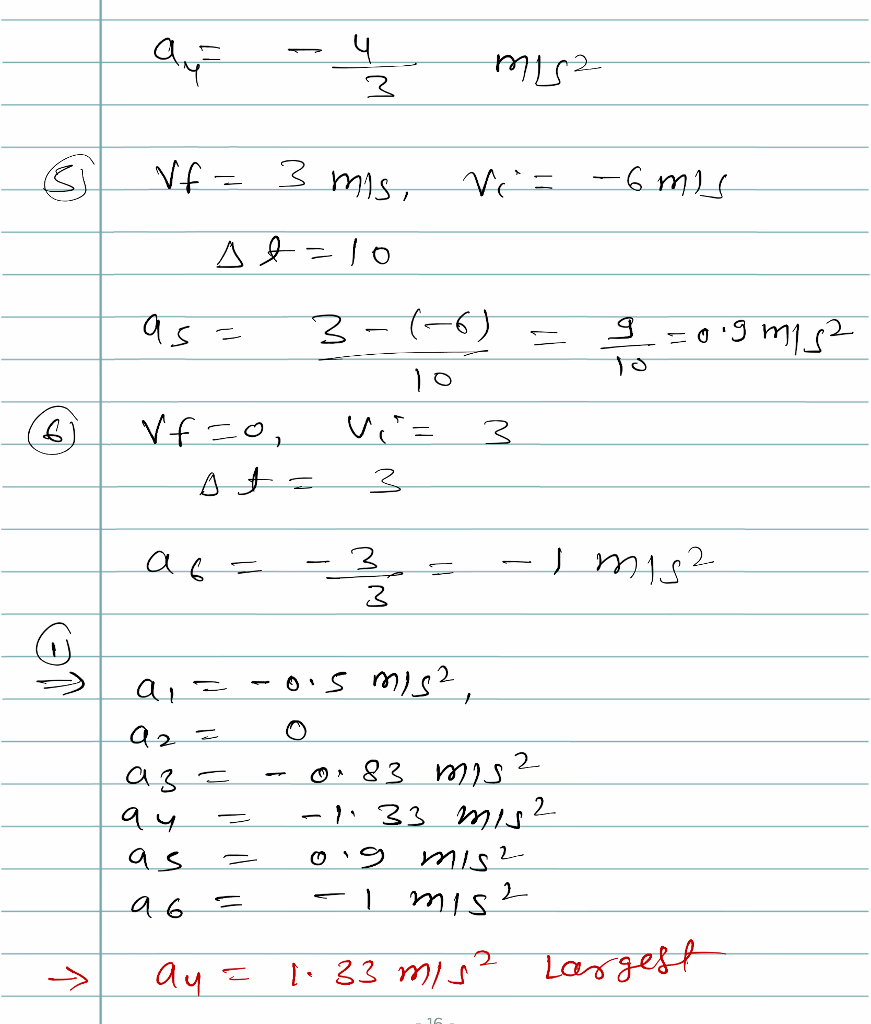 a4 = - 4/3 m/s2
(5) Vf = 3 m/s, Vi = -6 m/s
Δt = 10
a5 = 3-(-6)/10 = 9/10 = 0.9 m/s2
(6) Vf = 0, Vi = 3
Δt = 3
a6 = -3/3 = -1 m/s2
(1)
⇒ a1 = -0.5 m/s2,
a2 = 0
a3 = -0.83 m/s2
a4 = -1.33 m/s2
a5 = 0.9 m/s2
a6 = -1 m/s2
→ a4 = 1.33 m/s2 Largest
- 16 -